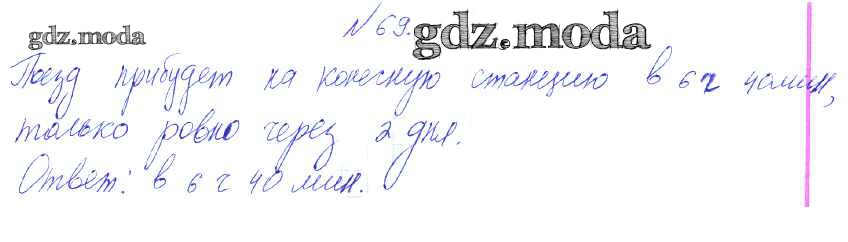 № 69.
gdz.moda
gdz.moda
Поезд прибудет на конечную станцию в 6 ч 40 мин,
только ровно через 2 дня.
Ответ: в 6 ч 40 мин.